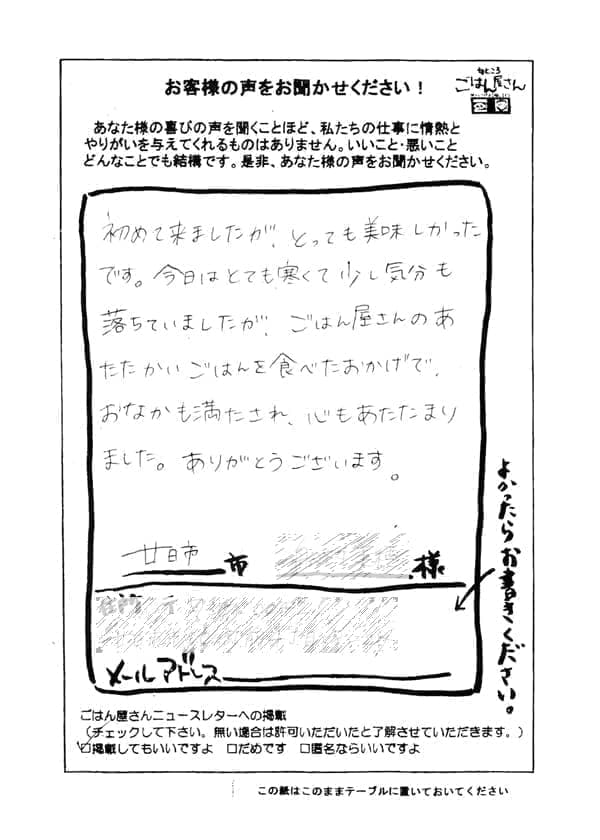 お客様の声をお聞かせください！
ごはん屋さん
あなた様の喜びの声を聞くことほど、私たちの仕事に情熱と
やりがいを与えてくれるものはありません。いいこと・悪いこと
どんなことでも結構です。是非、あなた様の声をお聞かせください。
初めて来ましたが、とっても美味しかった
です。今日はとても寒くて少し気分も
落ちていましたが、ごはん屋さんのあ
たたかいごはんを食べたおかげで、
おなかも満たされ、心もあたたまり
ました。ありがとうございます。
廿日市 市 様
よかったらお書きください。
メールアドレス
ごはん屋さんニュースレターへの掲載
（チェックして下さい。無い場合は許可いただいたと了解させていただきます。）
☑掲載してもいいですよ □だめです □匿名ならいいですよ
この紙はこのままテーブルに置いておいてください